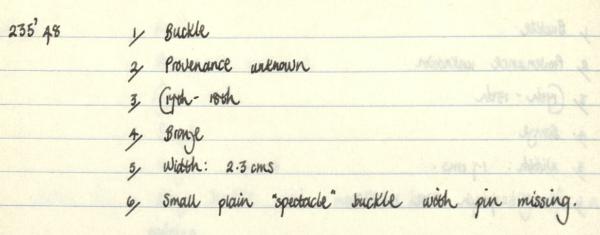 235' 48 1/ Buckle
2/ Provenance unknown
3/ C17th - 18th
4/ Bronze
5/ Width: 2.3 cms
6/ Small plain "spectacle" buckle with pin missing.